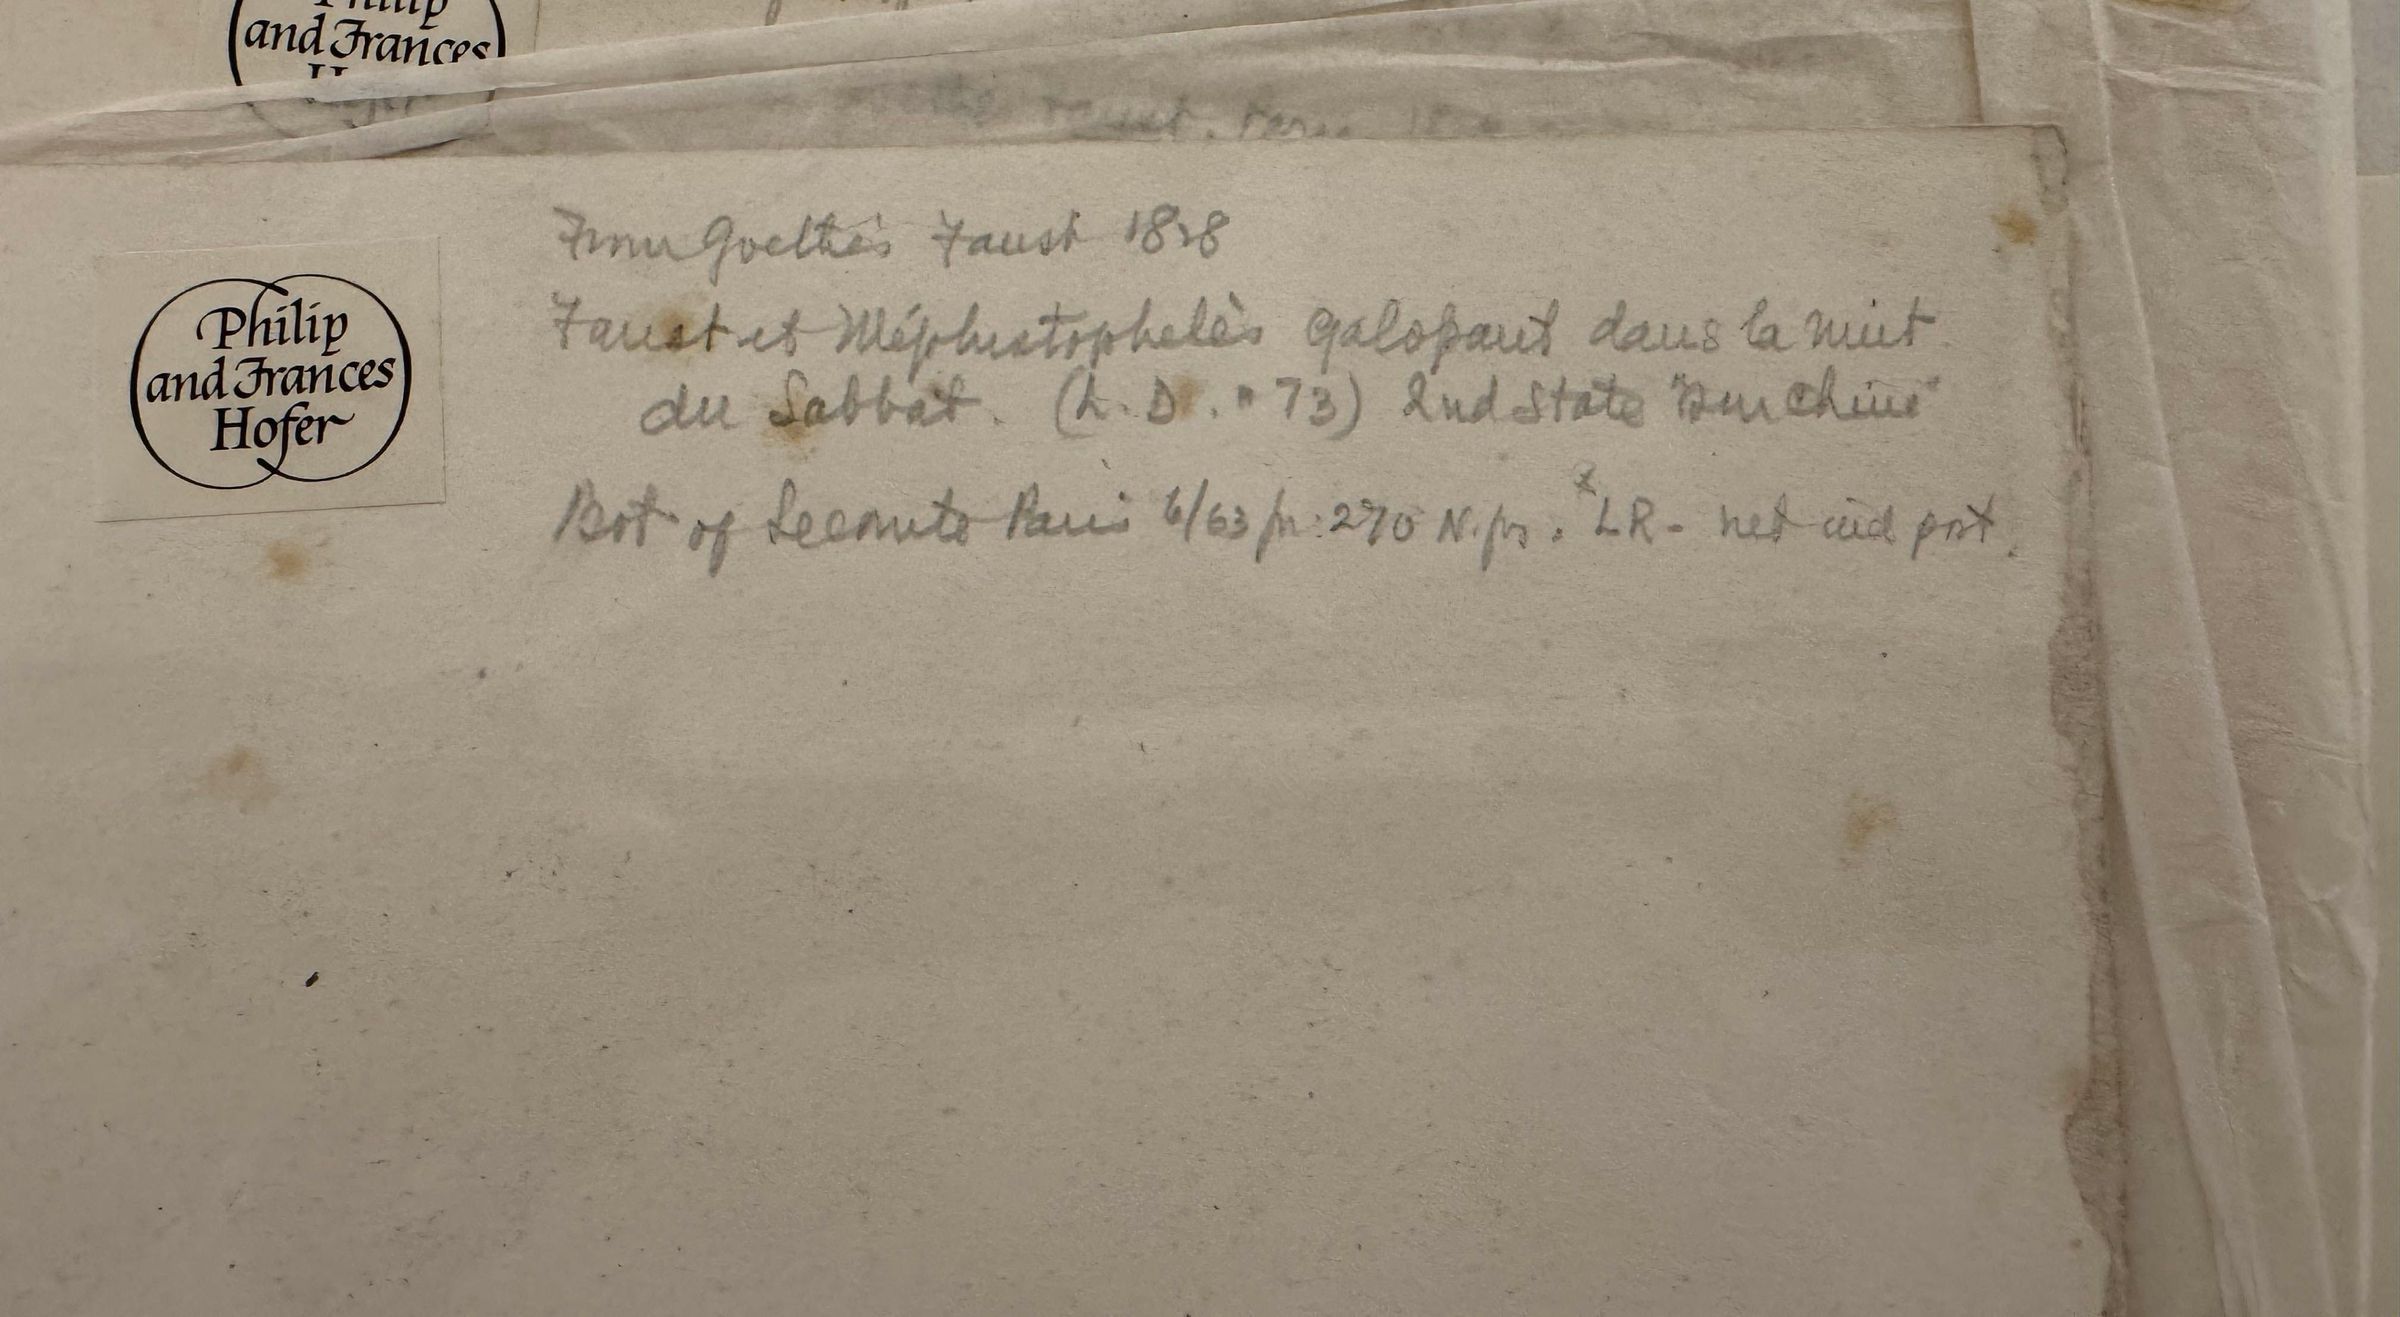 Philip
and Frances
From Goethe's Faust 1828
Faust et Méphistophelès galopant dans la nuit
du Sabbat. (L.D. " 73) 2nd State "Sur Chine"
Philip
and Frances
Hofer
Bot of Lecomte Paris 6/63 for 270 N.frs. LR - net ind pst.